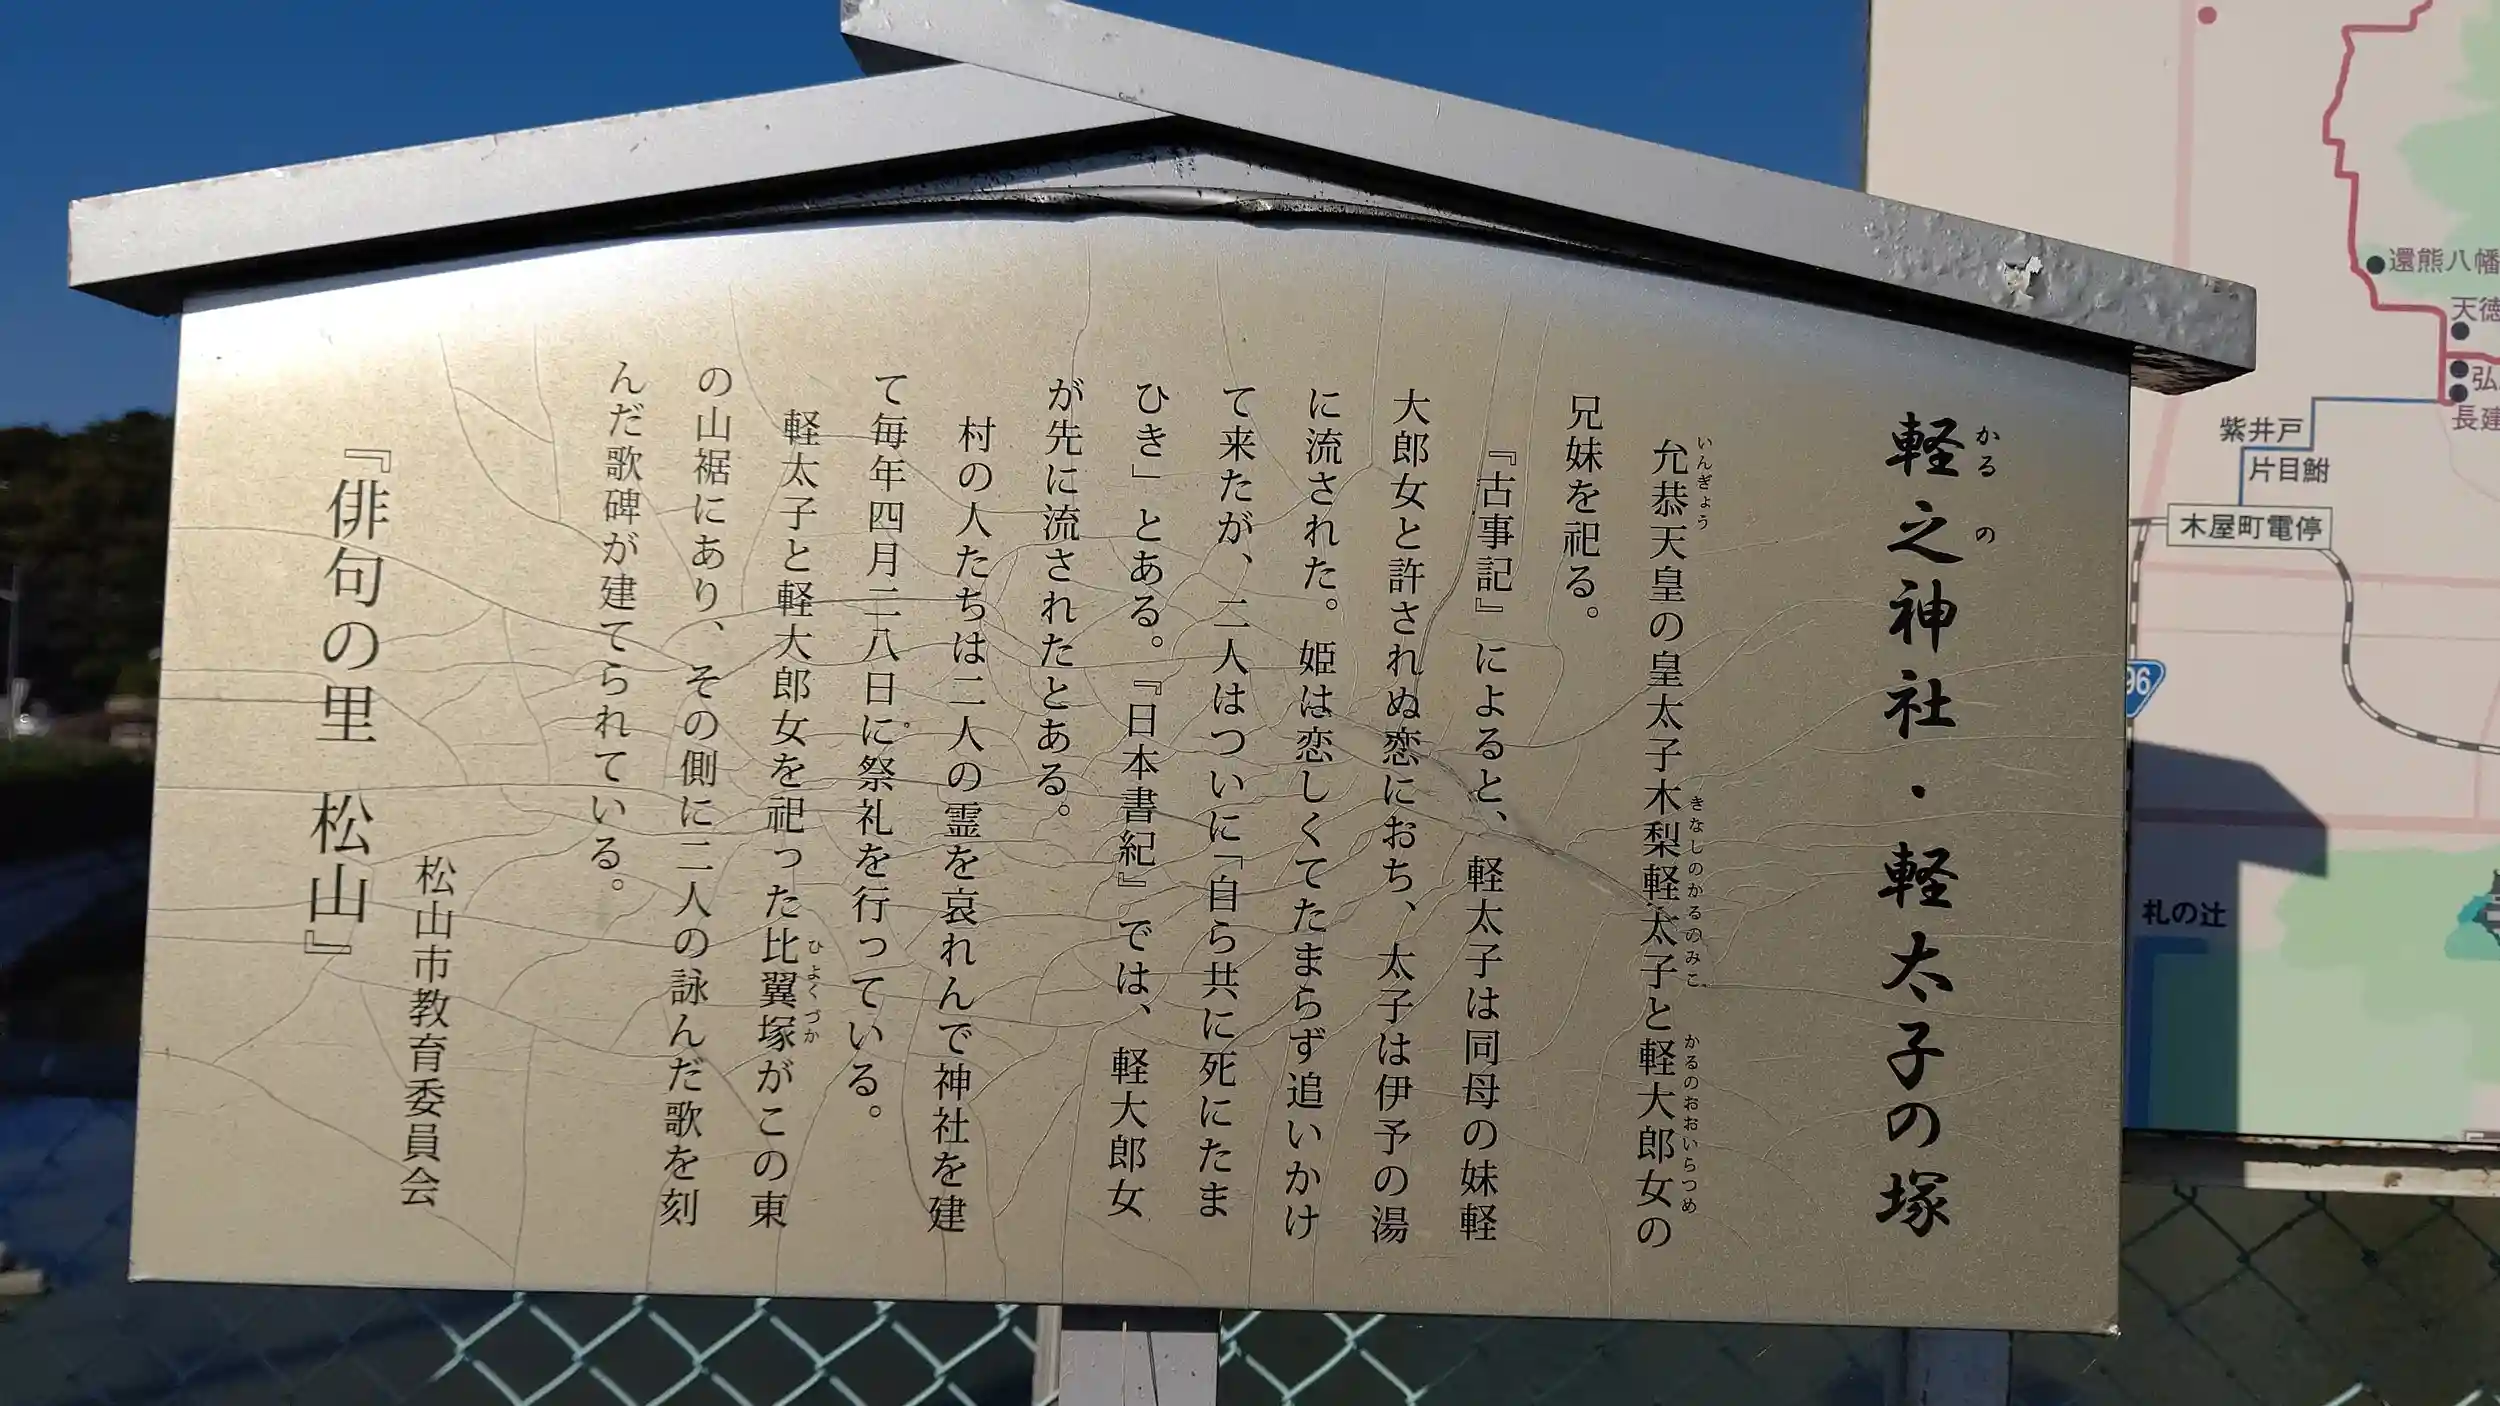 軽之神社・軽太子の塚
かるの
允恭天皇の皇太子木梨軽太子と軽大郎女の
いんぎょう
きなしのかるのみこ
かるのおおいらつめ
兄妹を祀る。
『古事記』によると、軽太子は同母の妹軽
大郎女と許されぬ恋におち、太子は伊予の湯
に流された。姫は恋しくてたまらず追いかけ
て来たが、二人はついに「自ら共に死にたま
ひき」とある。『日本書紀』では、軽大郎女
が先に流されたとある。
村の人たちは二人の霊を哀れんで神社を建
て毎年四月二八日に祭礼を行っている。
軽太子と軽大郎女を祀った比翼塚がこの東
ひよくづか
の山裾にあり、その側に二人の詠んだ歌を刻
んだ歌碑が建てられている。
松山市教育委員会
『俳句の里 松山』
還熊八幡
天徳
弘
長建
紫井戸
片目鮒
木屋町電停
96
札の辻